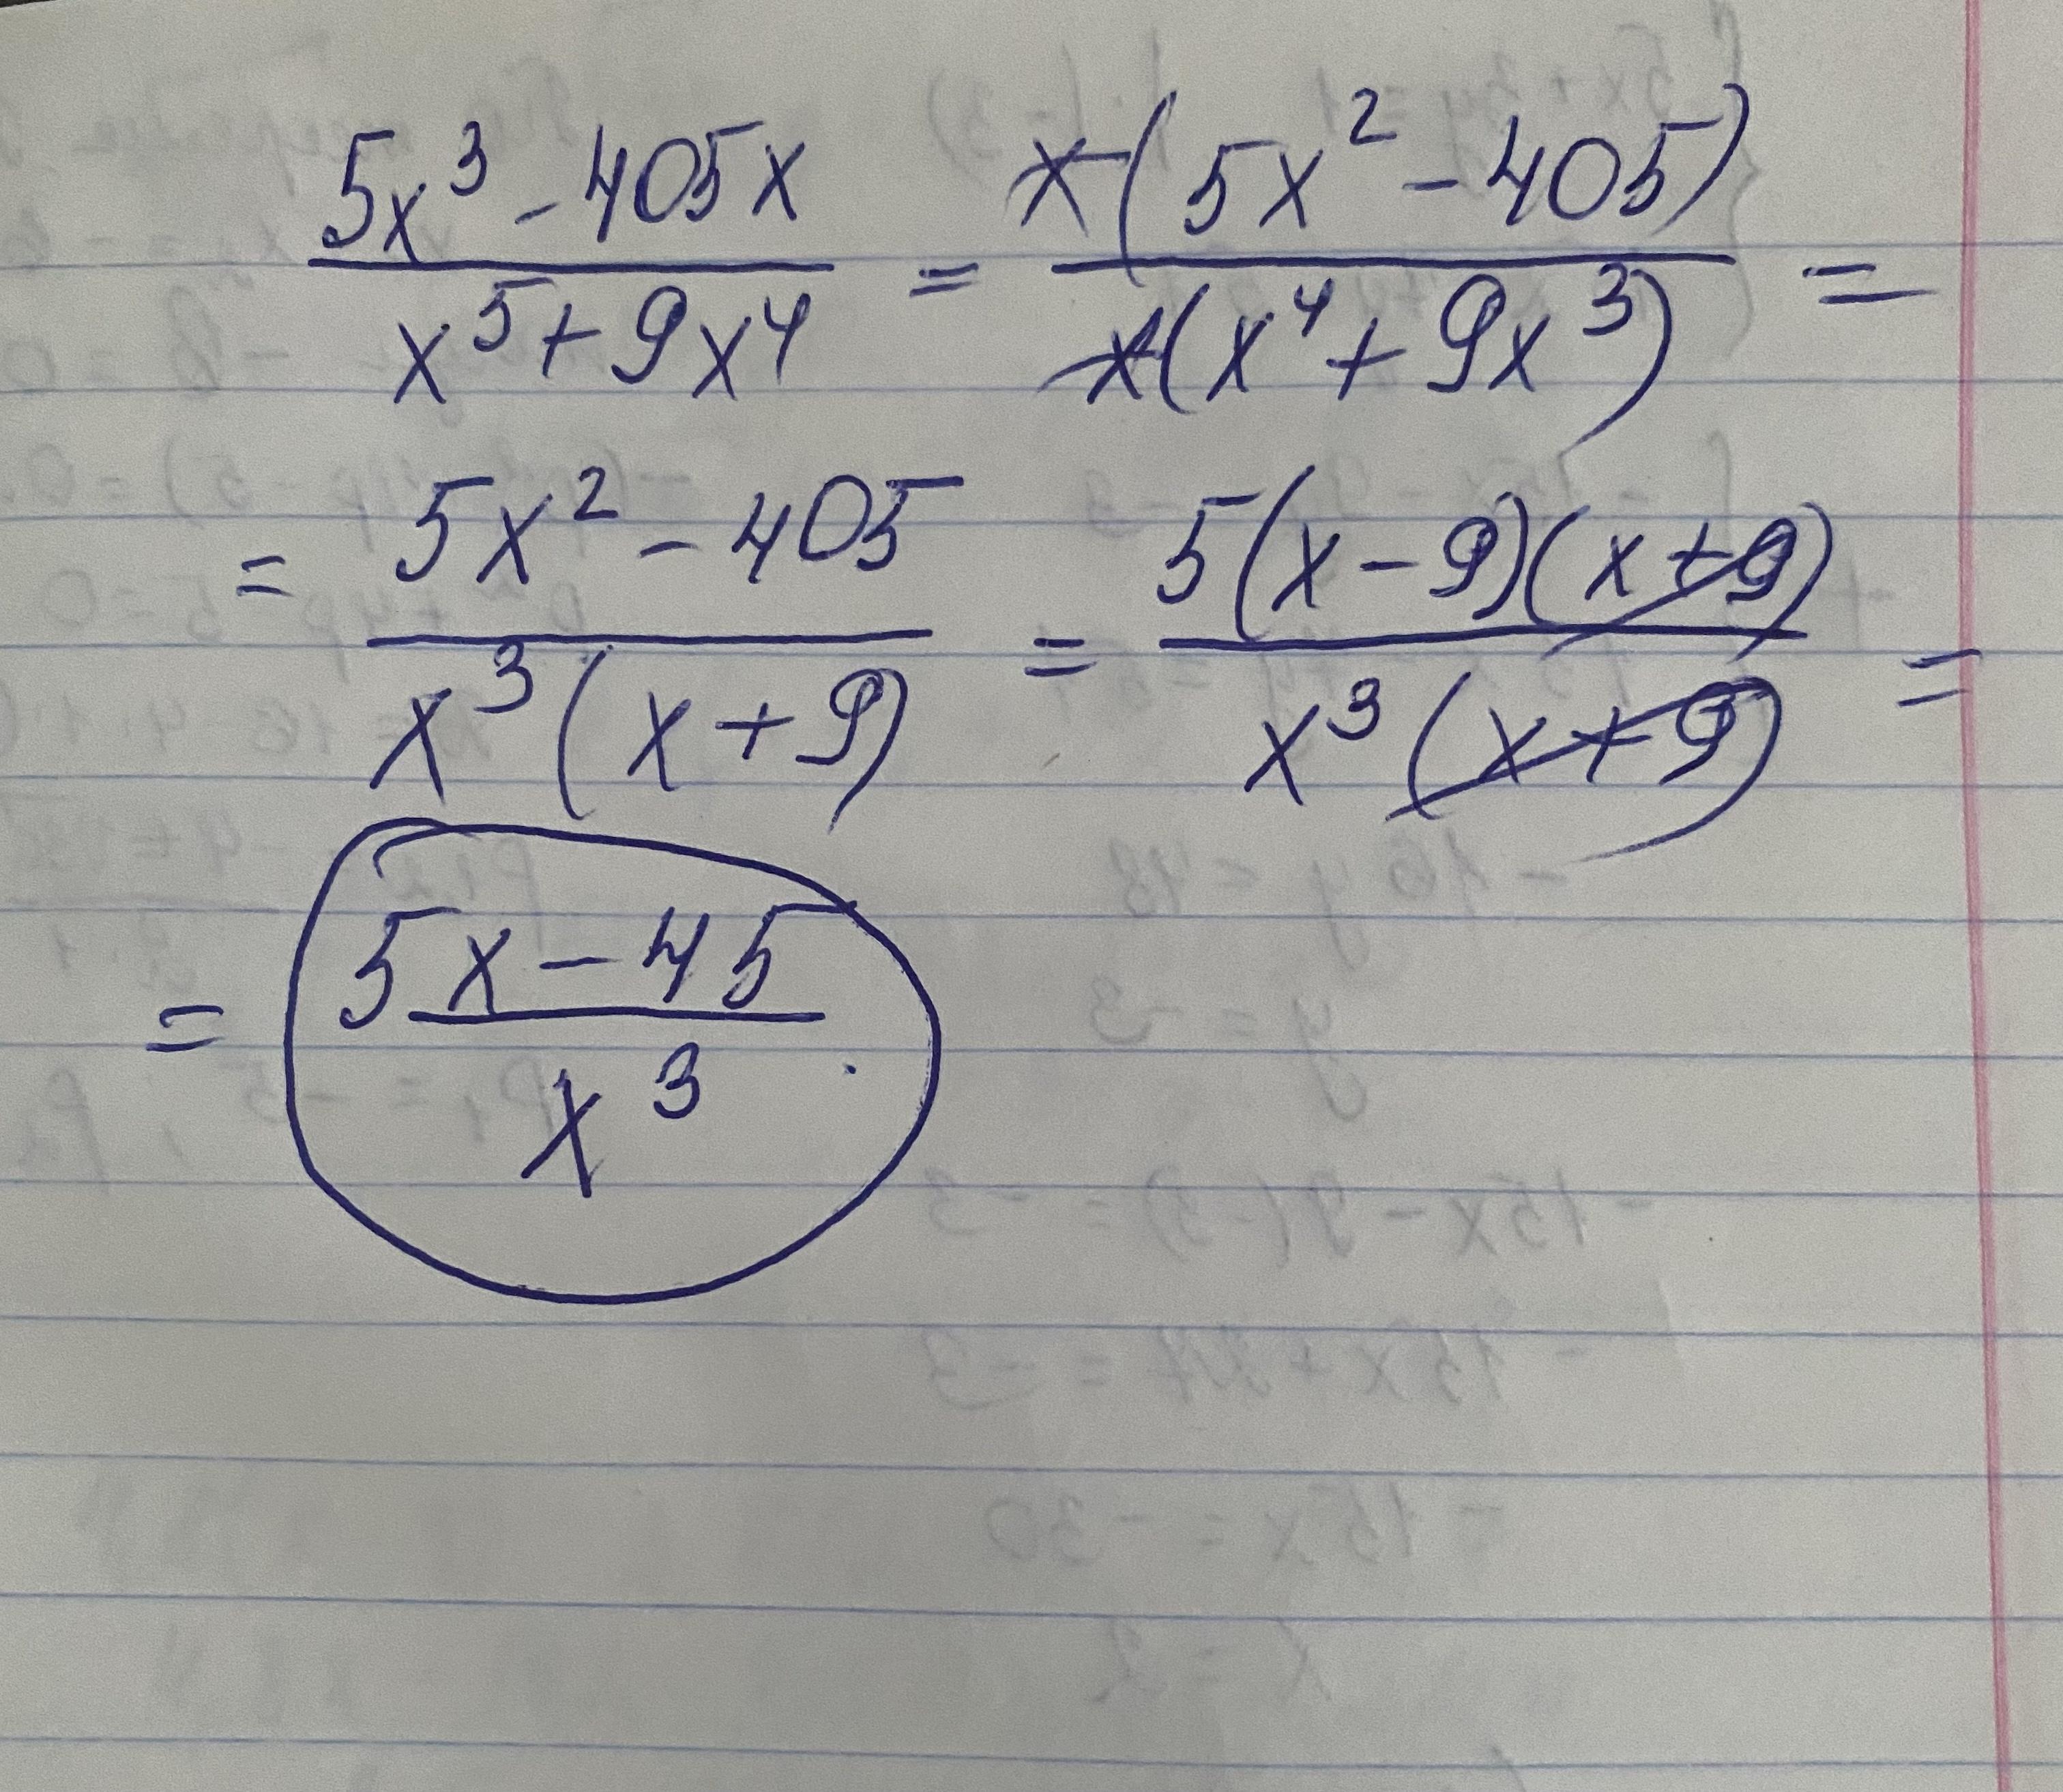 (5x³ - 405x)/(x⁵ + 9x⁴) = x(5x² - 405)/x(x⁴ + 9x³) =
= (5x² - 405)/x³(x + 9) = 5(x - 9)(x + 9)/x³(x + 9) =
= (5x - 45)/x³